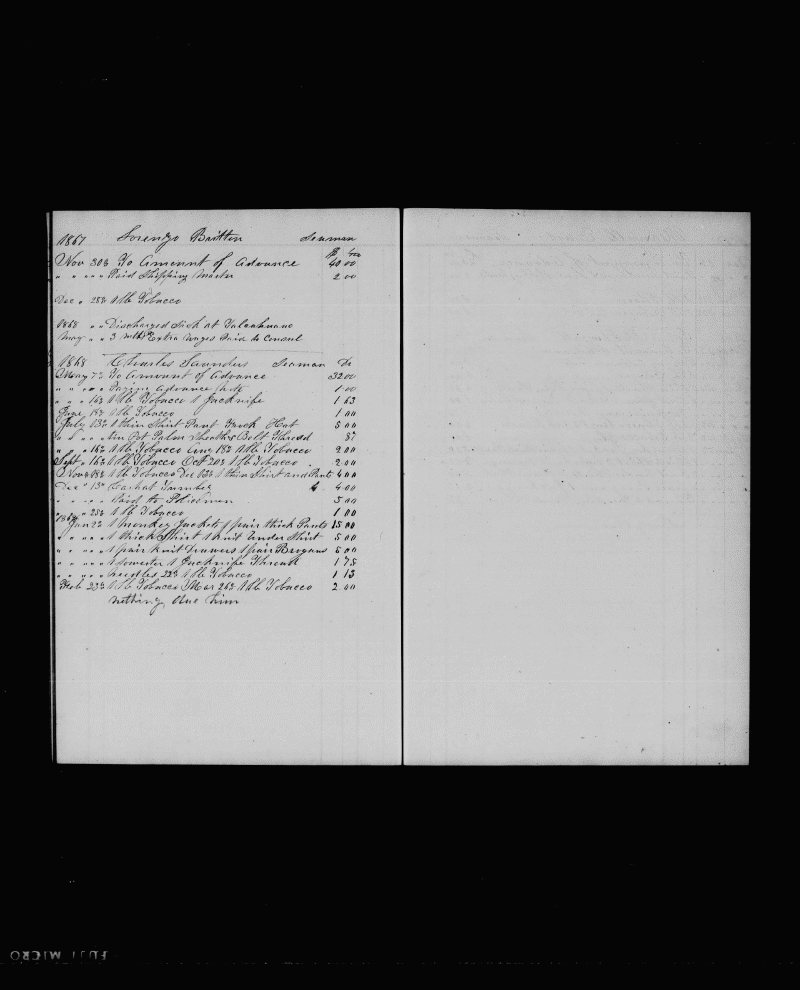 1867 Lorenzo Britton Seaman
$ cts
Nov 30th To Amount of Advance 40 00
" " " " Paid Shipping Master 2 00
Dec " 25th 1 lb Tobacco
1868 " " Discharged Sick at Talcahuano
May " " 3 mths Extra wages Paid to Consul
1868 Charles Saunders Seaman Dr
May 7th To Amount of Advance 32 00
" " " " Advance 1 00
" " " 16th 1 lb Tobacco 1 Jacknife 1 63
June 18th 1 lb Tobacco 1 00
July 13th 1 thin Shirt Pant Frock Hat 5 00
" " " " Tin Pot Palm Sheath & Belt Thread 87
" " 16th 1 lb Tobacco Aug 18th 1 lb Tobacco 2 00
Sept " 16th 1 lb Tobacco Oct 20th 1 lb Tobacco 2 00
Nov 18th 1 lb Tobacco Dec 13th 1 thin Shirt and Pants 4 00
Dec " 13th Cash at Tumbez 4 00
" " " " Paid to Policemen 5 00
" " 25th 1 lb Tobacco 1 00
1869 Jan 2d 1 Monkey Jacket 1 pair thick Pants 15 00
" " " " 1 thick Shirt 1 knit under Shirt 5 00
" " " " 1 pair knit Drawers 1 pair Brogans 6 00
" " " " 1 Jacknife Thread 1 75
" " " " needles 22d 1 lb Tobacco 1 13
Feb 23d 1 lb Tobacco Mar 26th 1 lb Tobacco 2 00
nothing due him
FUJI MICRO